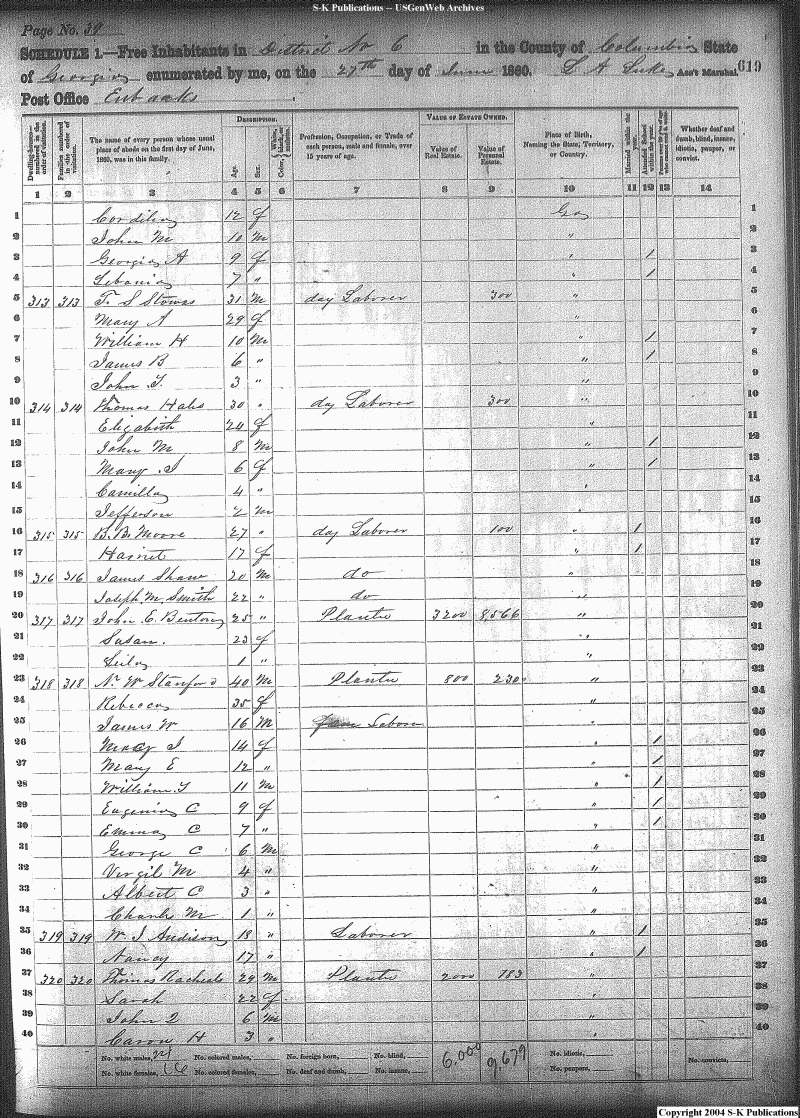 S-K Publications -- USGenWeb Archives
Page No. 39
SCHEDULE 1.—Free Inhabitants in District No 6 in the County of Columbia State
of Georgia enumerated by me, on the 27th day of June 1860. L A Luke Ass't Marshal. 619
Post Office Eubanks
Dwelling-houses—numbered in the order of visitation.
Families numbered in the order of visitation.
The name of every person whose usual place of abode on the first day of June, 1860, was in this family.
DESCRIPTION.
Age.
Sex.
Color,
Profession, Occupation, or Trade of each person, male and female, over 15 years of age.
VALUE OF ESTATE OWNED.
Value of Real Estate.
Value of Personal Estate.
Place of Birth, Naming the State, Territory, or Country.
Married within the year.
Attended School within the year.
Whether deaf and dumb, blind, insane, idiotic, pauper, or convict.
1 2 3 4 5 6 7 8 9 10 11 12 13 14
1 12 f Ga 1
2 John M 10 M " 2
3 Georgia A 9 f " / 3
4 7 " " / 4
5 313 313 T. S 31 M day Laborer 300 " 5
6 Mary A 29 f " 6
7 William H 10 M " / 7
8 James B 6 " " / 8
9 John T. 3 " " 9
10 314 314 Thomas 30 " day Laborer 300 " 10
11 Elizabeth 24 f " 11
12 John M 8 M " / 12
13 Mary J 6 f " / 13
14 Camilla 4 " " 14
15 Jefferson 2 M " 15
16 315 315 B. B. Moore 27 " day Laborer 100 " / 16
17 Harriet 17 f " / 17
18 316 316 James Shaw 20 M do " 18
19 Joseph M. Smith 22 " do " 19
20 317 317 John E. Benton 25 " Planter 3200 8,566 " 20
21 Susan. 23 f " 21
22 1 " " 22
23 318 318 N. W Stanford 40 M Planter 800 230 " 23
24 Rebecca 35 f " 24
25 James W 16 M Laborer " 25
26 J 14 f " / 26
27 Mary E 12 " " / 27
28 William T 11 M " / 28
29 Eugenia C 9 f " / 29
30 Emma C 7 " " / 30
31 George C 6 M " 31
32 Virgil M 4 " " 32
33 Albert C 3 " " 33
34 M 1 " " 34
35 319 319 W. J 18 " Laborer " / 35
36 Nancy 17 " " / 36
37 320 320 Thomas 29 M Planter 2000 183 " 37
38 Sarah 22 f " 38
39 John 6 M " 39
40 H 3 " " 40
No. white males, 24 No. colored males, No. foreign born, No. blind, 6,000 9,679 No. idiotic, No. convicts,
No. white females, 16 No. colored females, No. deaf and dumb, No. insane, No. paupers,
Copyright 2004 S-K Publications